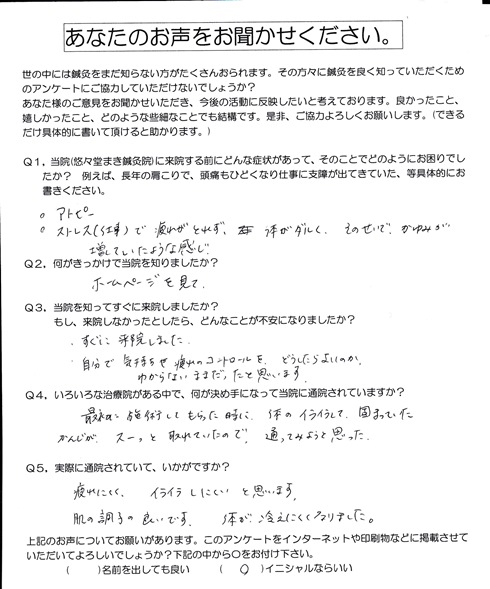 あなたのお声をお聞かせください。
世の中には鍼灸をまだ知らない方がたくさんおられます。その方々に鍼灸を良く知っていただくため
のアンケートにご協力していただけないでしょうか?
あなた様のご意見をお聞かせいただき、今後の活動に反映したいと考えております。良かったこと、
嬉しかったこと、どのような些細なことでも結構です。是非、ご協力よろしくお願いします。(できる
だけ具体的に書いて頂けると助かります。)
Q1. 当院(悠々堂まき鍼灸院)に来院する前にどんな症状があって、そのことでどのようにお困りでし
たか? 例えば、長年の肩こりで、頭痛もひどくなり仕事に支障が出てきていた、等具体的にお
書きください。
○ アトピー
○ ストレス(仕事)で疲れがとれず、体がダルく、そのせいで、かゆみが
増していたような感じ
Q2. 何がきっかけで当院を知りましたか?
ホームページを見て.
Q3. 当院を知ってすぐに来院しましたか?
もし、来院しなかったとしたら、どんなことが不安になりましたか?
・すぐに来院しました.
・自分で気持ちや疲れのコントロールを、どうしたらよいのか、
わからないままだったと思います.
Q4. いろいろな治療院がある中で、何が決め手になって当院に通院されていますか?
最初に施術してもらった時に、体のイライラして、固まっていた
かんじが、スーっと取れていたので、通ってみようと思った.
Q5. 実際に通院されていて、いかがですか?
疲れにくく、イライラしにくいと思います.
肌の調子の良いです. 体が、冷えにくくなりました。
上記のお声についてお願いがあります。このアンケートをインターネットや印刷物などに掲載させて
いただいてよろしいでしょうか?下記の中から○をお付け下さい。
( )名前を出しても良い ( ○ )イニシャルならいい